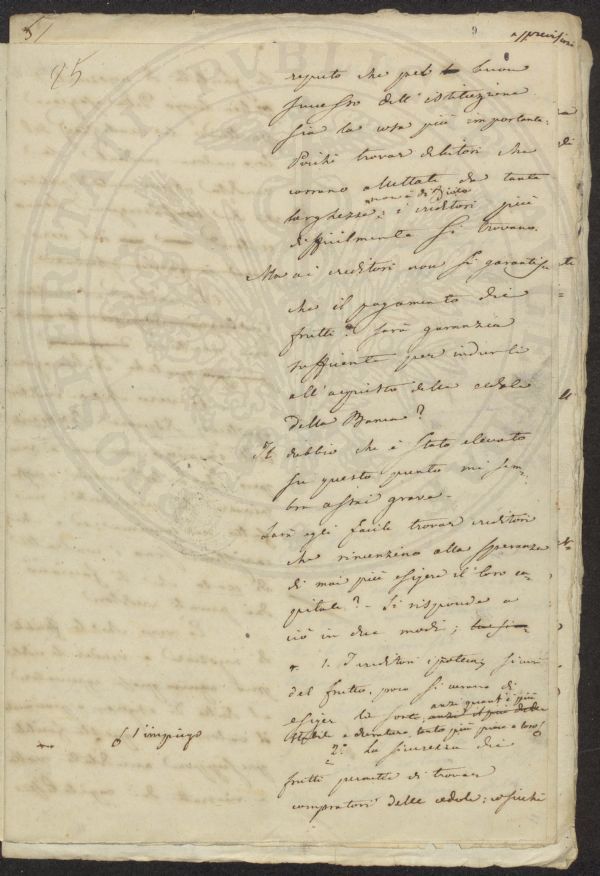 25
reputo che pel buon
successo dell'istituzione
sia la cosa più importante.
Poichè trovar debitori che
corrano allettati da tanta
larghezza, non è difficile
i creditori più
difficilmente si trovano.
Ma ai creditori non si garantisce
che il pagamento dei
frutti? Sarà garanzia
sufficiente per indurli
all'acquisto delle cedole
della Banca?
Il dubbio che è stato elevato
su questo punto mi sem-
bra assai grave.
Sarà egli facile trovar creditori
che rinunzino alla speranza
di mai più esigere il loro ca-
pitale? - Si risponde a
ciò in due modi;
1. I creditori ipotecarj sicuri
del frutto, poco si curano di
esiger la sorte, anzi quant'è più
stabile e duratura, tanto più piace a loro
l'impiego
2.º La sicurezza dei
frutti permette di trovar
compratori delle cedole; cosicchè